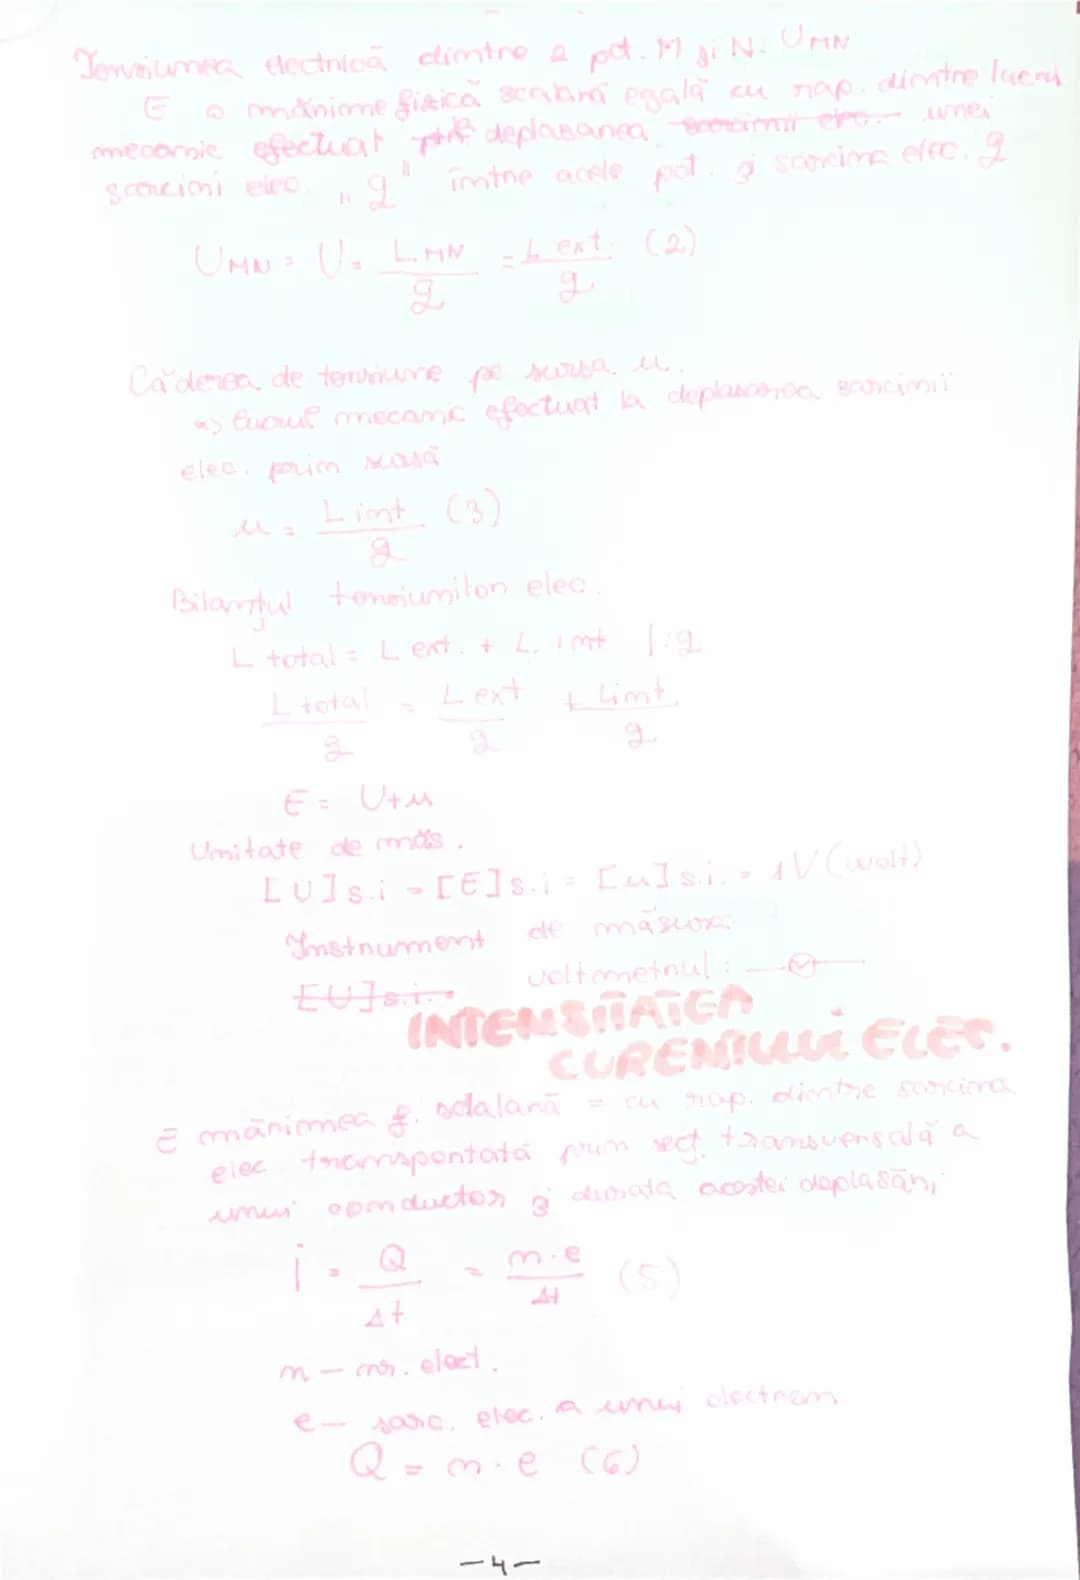 Tensiunea electrică dintre 2 pct. M și N: UMN
E o mărime fizică scalară egală cu rap. dintre lucru
mecanic efectuat ptr. deplasarea sarcinii elec. unei
sarcini elec. „q" între acele pct. și sarcina elec. q
UMN = U = LMN/q = L ext./q (2)
Căderea de tensiune pe sursa. u.
=> lucrul mecanic efectuat la deplasarea sarcinii
elec. prin
u = L int/q (3)
Bilanțul tensiunilor elec.
L total = L ext. + L. int |:q
L total/q = L ext/q + L int./q
E = U+u
Unitate de măs.
[U]s.i = [E]s.i = [u]s.i. = 1V (wolt)
Instrument de măsură
voltmetrul: V
[U]s.i.
INTENSITATEA
CURENTULUI ELEC.
E mărimea f. scalară = cu rap. dintre sarcina
elec. transportată prin secț. transversală a
unui conductor și durata acestei deplasări
i = Q/Δt = n·e/Δt (5)
n – nr. elect.
e – sarc. elec. a unui electron
Q = n·e (6)
-4-